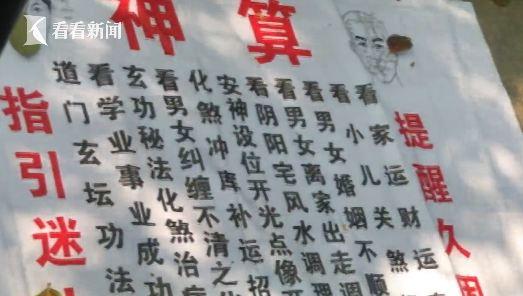 看看新闻
神算
提醒久
看家运财运
看小儿关煞
看男女婚姻不顺
看男女离家出走
看阴阳宅风水调
安神设位开光点像
化煞冲库补运招
看男女纠缠不清之
玄功秘法化煞治病
看学业事业成功
道门玄坛功法
指引迷